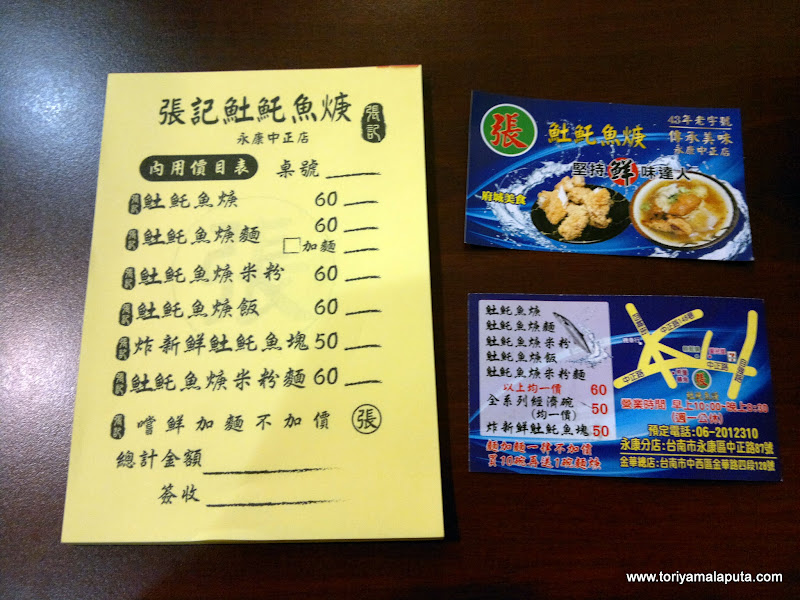 張記䰾魠魚焿
張記
永康中正店
內用價目表
桌號
䰾魠魚焿 60
䰾魠魚焿麵 60
加麵
䰾魠魚焿米粉 60
䰾魠魚焿飯 60
炸新鮮䰾魠魚塊 50
䰾魠魚焿米粉麵 60
嚐鮮加麵不加價
張
總計金額
簽收
張
䰾魠魚焿
43年老字號
傳承美味
永康中正店
堅持鮮味達人
府城美食
䰾魠魚焿
䰾魠魚焿麵
䰾魠魚焿米粉
䰾魠魚焿飯
䰾魠魚焿米粉麵
以上均一價 60
全系列經濟碗 50
(均一價)
炸新鮮䰾魠魚塊 50
麵加麵一樣不加價
買10碗再送1碗麵焿
中正路
中正路
張
營業時間 早上10:00~晚上8:30
(週一公休)
預定電話:06-2012310
永康分店:台南市永康區中正路87號
金華總店:台南市中西區金華路四段128號
www.toriyamalaputa.com